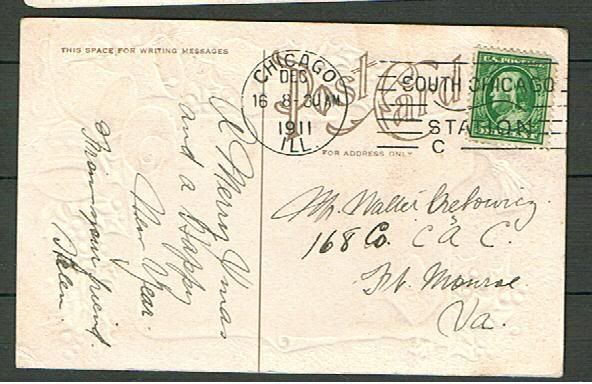 THIS SPACE FOR WRITING MESSAGES
Post Card
FOR ADDRESS ONLY
CHICAGO
DEC
16 8-30AM
1911
ILL.
SOUTH CHICAGO
STATION
C
U.S. POSTAGE
A Merry Xmas
and a Happy
New Year.
From your friend
Helen.
Mr. Walter
168 Co. C A C.
Ft. Monroe
Va.